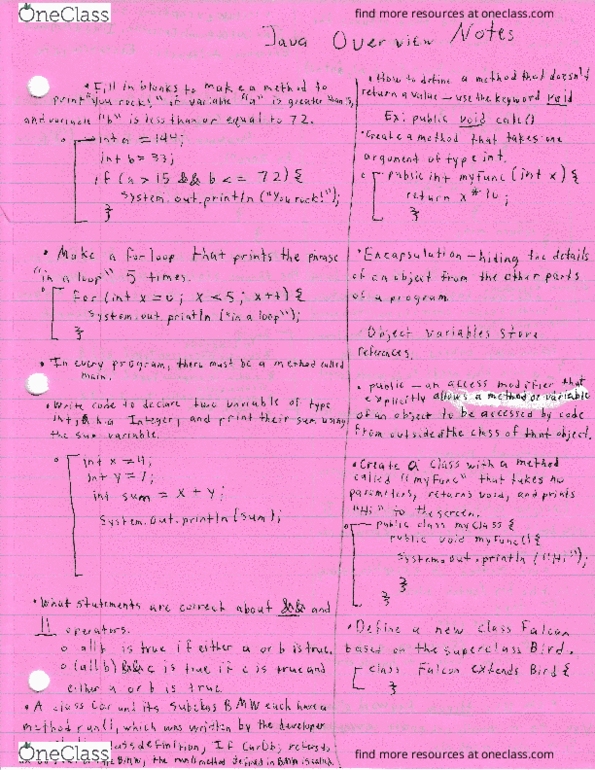 OneClass
find more resources at oneclass.com
Java Overview Notes
• Fill in blanks to make a method to
print "you rock!" if variable "a" is greater than 15,
and variable "b" is less than or equal to 72.
int a = 144;
int b = 33;
if (a > 15 && b <= 72) {
System.out.println("You rock!");
}
• Make a for loop that prints the phrase
"in a loop" 5 times.
for (int x=0; x<5; x++) {
System.out.println("in a loop");
}
• In every program, there must be a method called
main.
• Write code to declare two variable of type
int, Integer, and print their sum using
the sum variable.
int x = 4;
int y = 7;
int sum = x + y;
System.out.println(sum);
• What statements are correct about && and
|| operators.
o a||b is true if either a or b is true.
o (a||b) && c is true if c is true and
either a or b is true.
• A class Car and its subclass BMW each have a
method run(), which was written by the developer
class definition, If CarObj refers to
BMW, the run() method defined in BMW is called.
• How to define a method that doesn't
return a value - use the keyword void
Ex: public void calc()
• Create a method that takes one
argument of type int.
public int myfunc (int x) {
return x*10;
}
• Encapsulation - hiding the details
of an object from the other parts
of a program.
• Object variables store
references.
• public - an access modifier that
explicitly allows a method or variable
of an object to be accessed by code
from outside of the class of that object.
• Create a class with a method
called "myFunc" that takes no
parameters, returns void, and prints
"Hi" to the screen.
public class myclass {
public void myfunc() {
System.out.println ("Hi");
}
}
• Define a new class Falcon
based on the superclass Bird.
class Falcon extends Bird {
}
OneClass
find more resources at oneclass.com